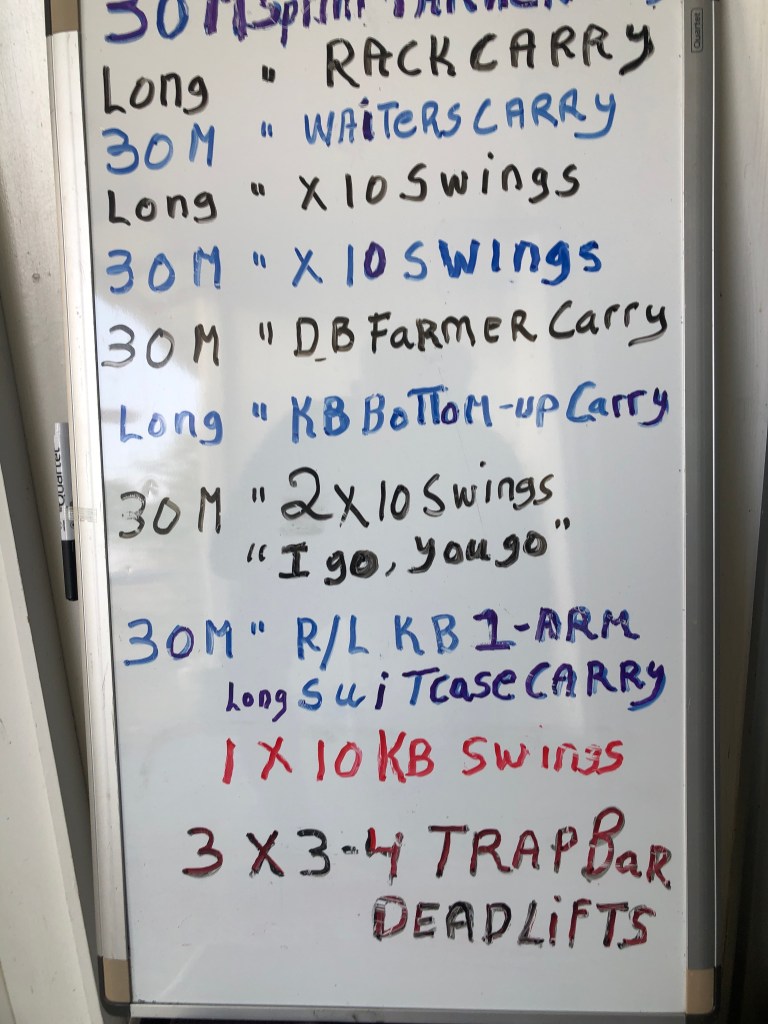 30M Sprint FARMER
Long " RACK CARRY
30M " WAiTeRS CARRY
Long " X 10 Swings
30M " X 10 SWings
30M " D.B FaRMER Carry
Long " KB BoTToM-up Carry
30M " 2 X 10 Swings
"I go, you go"
30M " R/L KB 1-ARM
Long SuiTcase CARRY
1 X 10 KB Swings
3 X 3-4 TRAP BaR
DEADLiFTS
Quartet
Quartet